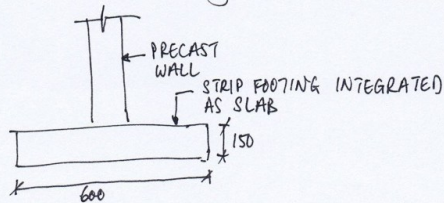 PRECAST
WALL
STRIP FOOTING INTEGRATED
AS SLAB
150
600